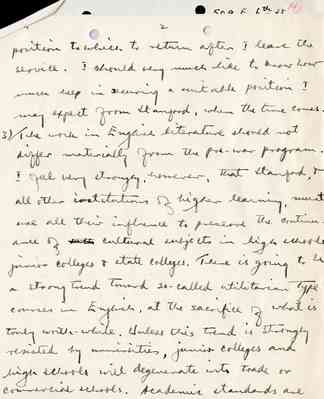 2
position to which to return after I leave the
service. I should very much like to know how
much help in securing a suitable position I
may expect from Stanford, when the time comes.
3) The work in English literature should not
differ materially from the pre-war program.
I feel very strongly, however, that Stanford, &
all other institutions of higher learning, must
use all their influence to preserve the continu-
ance of cultural subjects in high schools
junior colleges & state colleges. There is going to be
a strong trend toward so-called utilitarian type
courses in English, at the sacrifice of what is
truly worth-while. Unless this trend is strongly
resisted by universities, junior colleges and
high schools will degenerate into trade or
commercial schools. Academic standards are